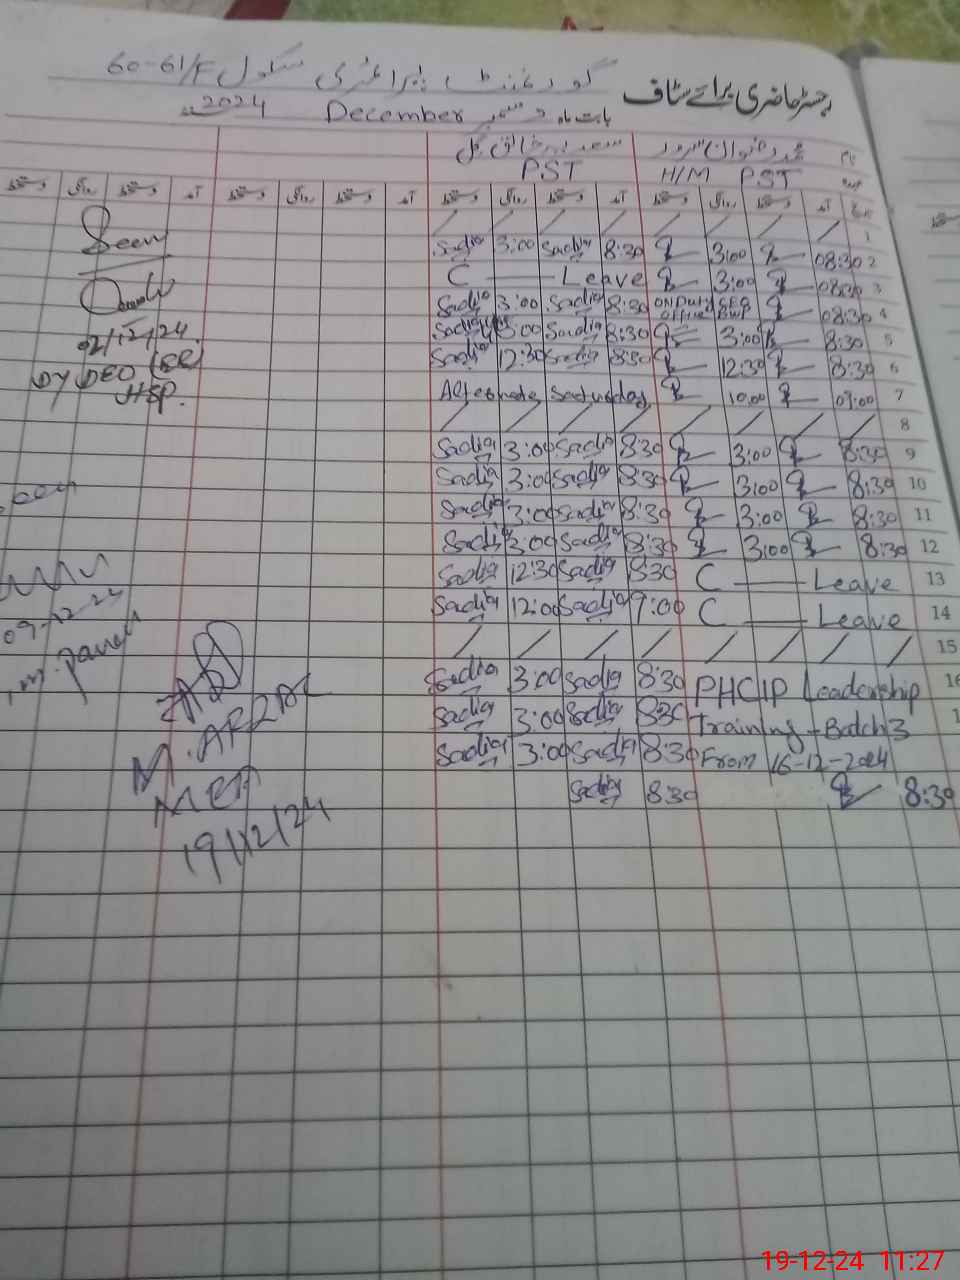 رجسٹر حاضری برائے سٹاف
گورنمنٹ پرائمری سکول 60-61/F
بابت ماہ دسمبر December 2024
نام محمد رضوان سرور سعدیہ خالق
عہدہ H/M PST PST
تاریخ آمد دستخط روانگی دستخط آمد دستخط روانگی دستخط آمد دستخط روانگی دستخط آمد دستخط روانگی دستخط
1 / / / / / / / /
2 08:30 3:00 8:30 Sadia 3:00 Sadia
3 08:30 3:00 C — Leave
4 08:30 ON Duty Office CEO BWP 8:30 Sadia 3:00 Sadia
5 8:30 3:00 8:30 Sadia 3:00 Sadia
6 8:30 12:30 8:30 Sadia 12:30 Sadia
7 09:00 10:00 Alternate Saturday
8 / / / / / / / /
9 8:30 3:00 8:30 Sadia 3:00 Sadia
10 8:30 3:00 8:30 Sadia 3:00 Sadia
11 8:30 3:00 8:30 Sadia 3:00 Sadia
12 8:30 3:00 8:30 Sadia 3:00 Sadia
13 C — Leave 8:30 Sadia 12:30 Sadia
14 C — Leave 9:00 Sadia 12:00 Sadia
15 / / / / / / / /
16 PHCIP Leadership 8:30 Sadia 3:00 Sadia
1 Training - Batch 3 8:30 Sadia 3:00 Sadia
From 16-12-2024 8:30 Sadia 3:00 Sadia
8:30 8:30 Sadia
Seen
02/12/24
DY DEO
HSP.
09-12-24
M. AFZAL
MEA
19/12/24
19-12-24 11:27